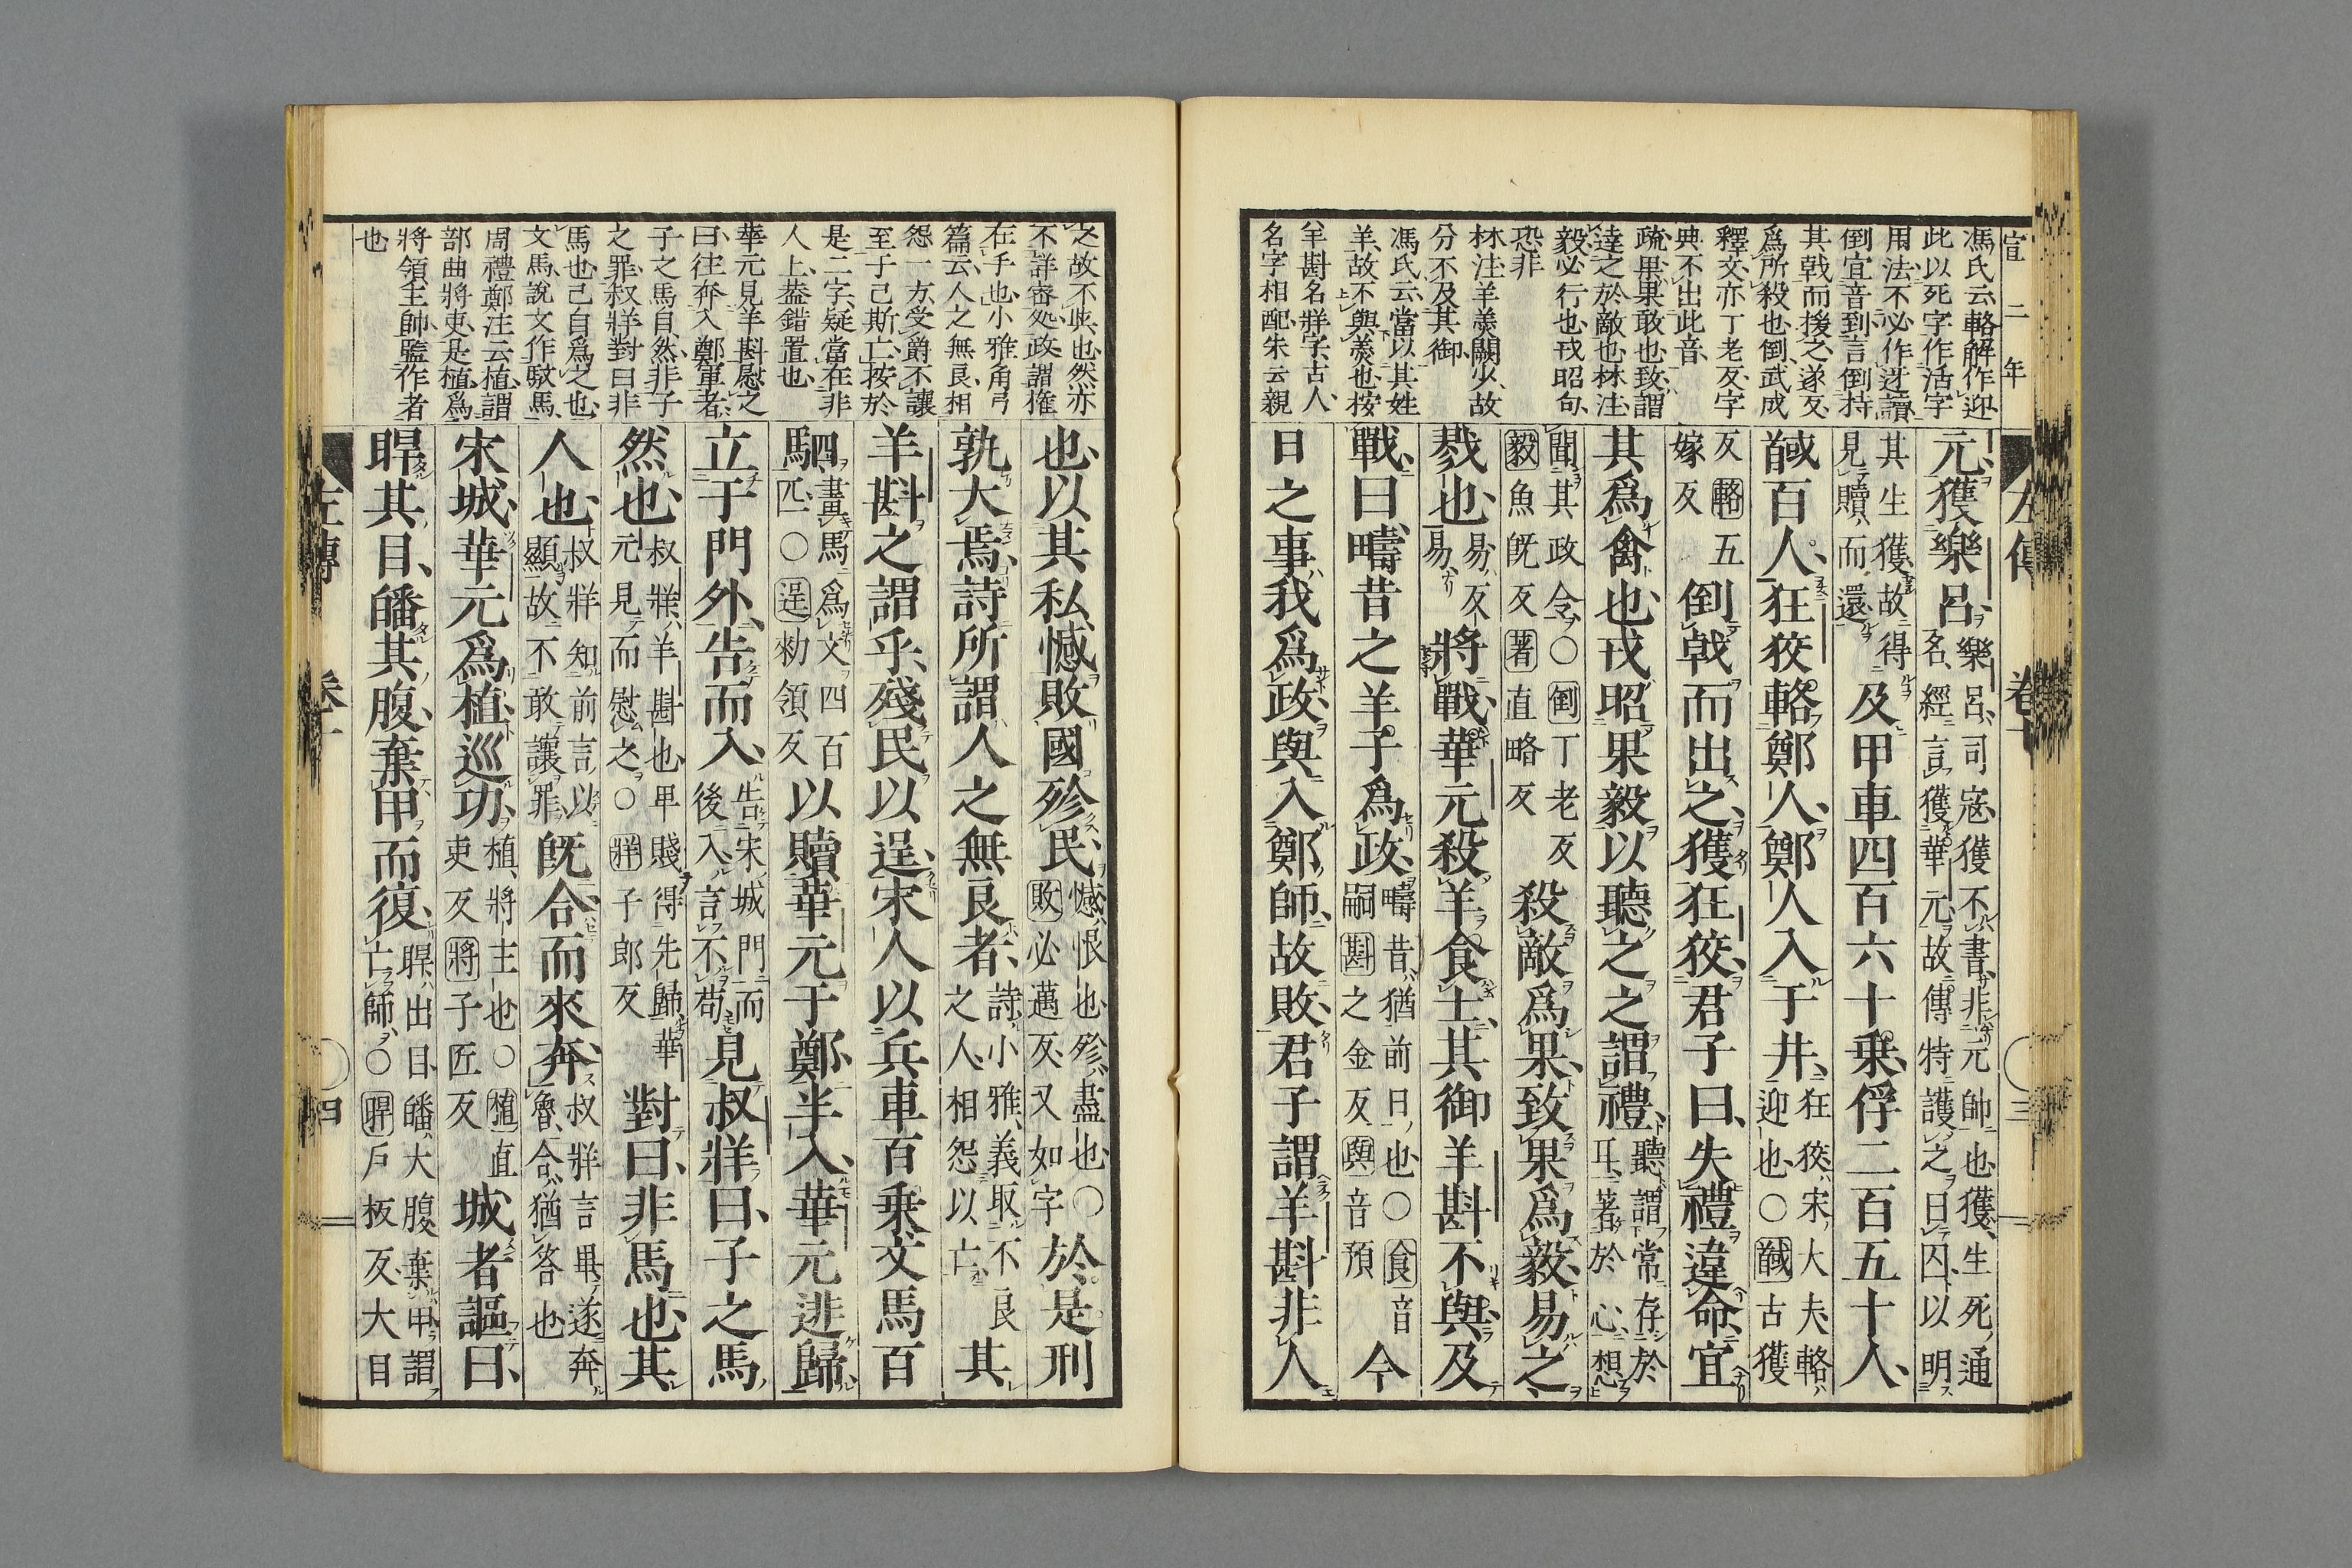 宣二年
馮氏云輅解作迎
此以死字作活字
用法不必作迓讀
倒宣音到言倒持
其戟而援之遂反
爲所殺也倒武成
釋文亦丁老反字
典不出此音
疏果果敢也致謂
達之於敵也林注
毅必行也戎昭句
恐非
林注羊羮闕少故
分不及其御
馮氏云當以其姓
羊故不與羮也按
羊斟名牂字古人
名字相配朱云親
元獲樂呂樂呂司寇獲不書非元帥也獲生死通名經言獲華元故傳特護之曰囚以明
其生獲故得見贖而還及甲車四百六十乘俘二百五十人
馘百人狂狡輅鄭人鄭人入于井狂狡宋大夫輅迎也○馘古獲
反輅五嫁反倒戟而出之獲狂狡君子曰失禮違命宜
其爲禽也戎昭果毅以聽之之謂禮聽謂常存於耳著於心想
聞其政令○倒丁老反毅魚旣反著直略反殺敵爲果致果爲毅易之
戮也易反易將戰華元殺羊食士其御羊斟不與及
戰曰疇昔之羊子爲政疇昔猶前日也○食音嗣斟之金反與音預今
日之事我爲政與入鄭師故敗君子謂羊斟非人
左傳 卷十 三
之故不與也然亦
不詳審処政謂権
在手也小雅角弓
篇云人之無良相
怨一方受爵不讓
至于己斯亡按於
是二字疑當在非
人上葢錯置也
華元見羊斟慰之
曰往奔入鄭軍者
子之馬自然非子
之罪叔牂對曰非
馬也己自爲之也
文馬說文作馼馬
周禮鄭注云植謂
部曲將吏是植爲
將領主帥監作者
也
也以其私憾敗國殄民憾恨也殄盡也○敗必邁反又如字於是刑
孰大焉詩所謂人之無良者詩小雅義取不良之人相怨以亡其
羊斟之謂乎殘民以逞宋人以兵車百乘文馬百
駟畫馬爲文四百四匹○逞勑領反以贖華元于鄭半入華元逃歸
立于門外告而入告宋城門而後入言不苟見叔牂曰子之馬
然也叔牂羊斟也卑賤得先歸華元見而慰之○牂子郎反對曰非馬也其
人也叔牂知前言以顯故不敢讓罪旣合而來奔叔牂言畢遂奔魯合猶答也
宋城華元爲植巡功植將主也○植直吏反將子匠反城者謳曰
睅其目皤其腹棄甲而復睅出目皤大腹棄甲謂亡師○睅戶板反大目
左傳 卷十 四